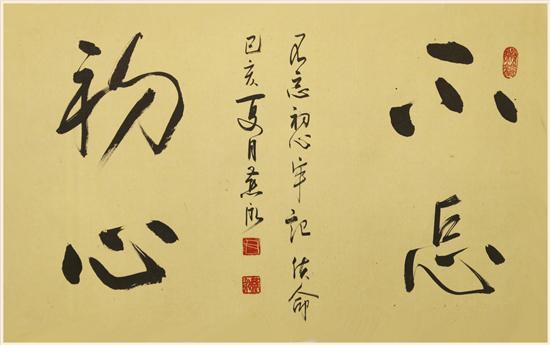 不忘
初心
不忘初心牢记使命
己亥夏月